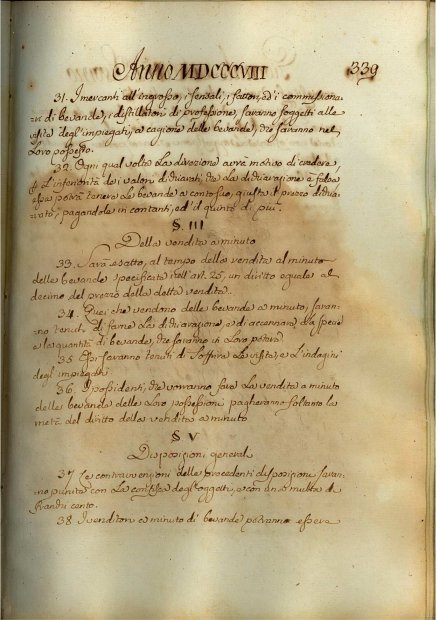 Anno MDCCCVIII 339
31. I mercanti all'ingrosso, i sensali, i fattori, ed i commissiona-
ri di bevande, i distillatori di professione, saranno soggetti alle
visite degl'impiegati, a cagione delle bevande, che saranno nel
loro possesso.
32. Ogni qual volta la direzione avrà motivo di credere,
l'inferiorità de' valori dichiarati, che la dichiarazione è falsa
essa, potrà tenere le bevande a conto suo, giusta il prezzo dichia-
rato, pagandole in contanti, ed il quinto di più.
§. III
Della vendita a minuto
33. Sarà esatto, al tempo della vendita al minuto
delle bevande specificate nell'art. 25, un diritto eguale al
decimo del prezzo della detta vendita.
34. Quei che vendono delle bevande a minuto, saran-
no tenuti di farne la dichiarazione, e di accennare la specie
e la quantità di bevande, che saranno in loro potere
35. Essi saranno tenuti di soffrire la visita, e l'indagini
degl'impiegati
36. I possidenti, che vorranno fare la vendita a minuto
delle bevande delle loro possessioni pagheranno soltanto la
metà del diritto della vendita a minuto
§ V
Disposizioni generali
37 Le contravvenzioni delle precedenti disposizioni saran-
no punite con la confisca degl'oggetti, e con una multa di
franchi cento.
38 I venditori a minuto di bevande potranno essere